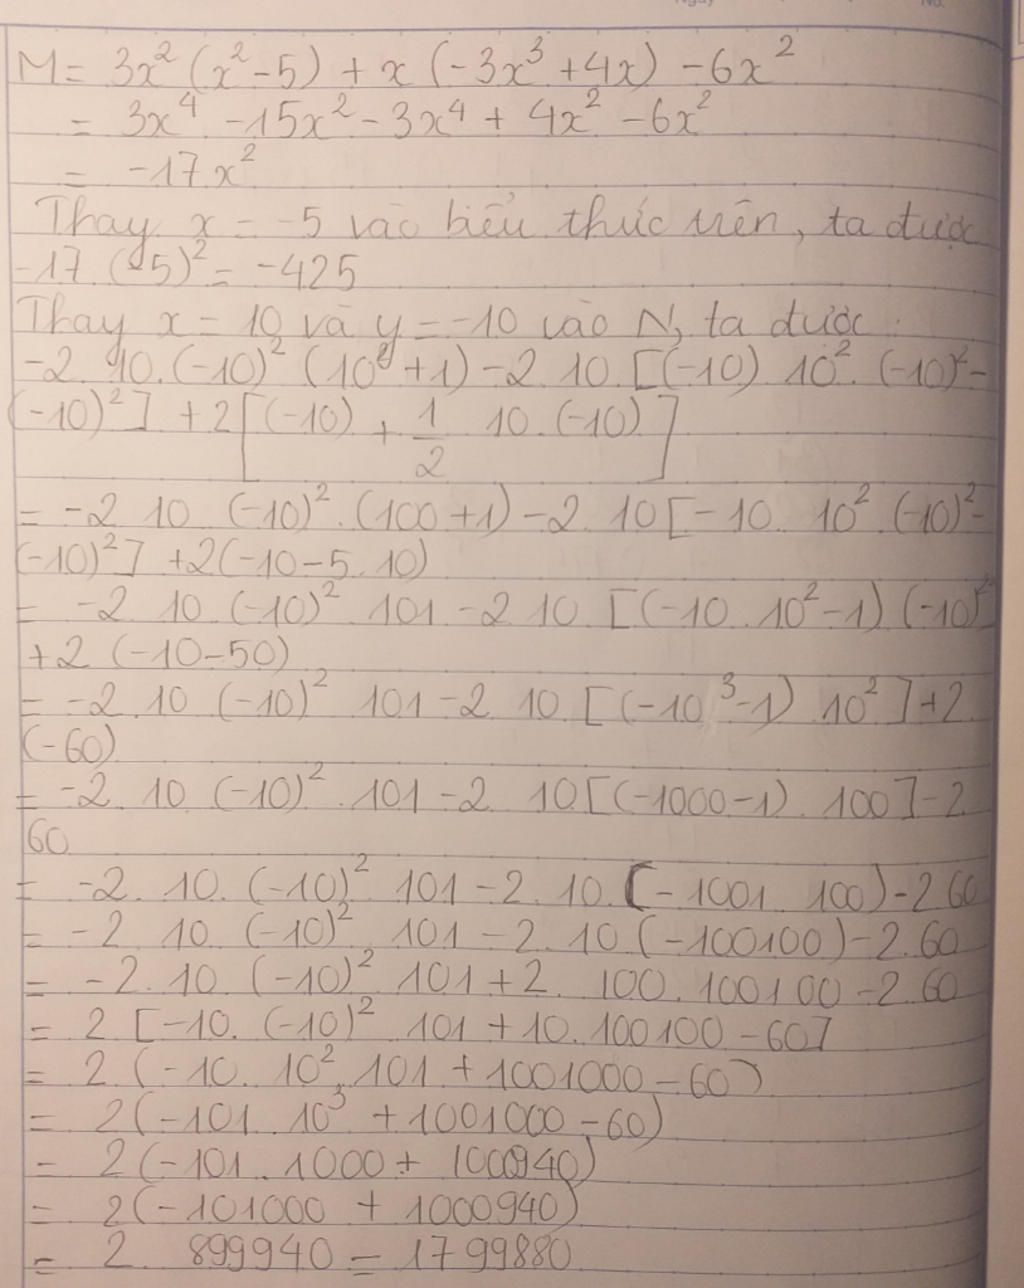 M = 3x² (x² - 5) + x (-3x³ + 4x) - 6x²
= 3x⁴ - 15x² - 3x⁴ + 4x² - 6x²
= -17x²
Thay x = -5 vào biểu thức trên, ta được
-17 . (-5)² = -425
Thay x = 10 và y = -10 vào N, ta được :
-2 . 10 . (-10)² (10² + 1) - 2 . 10 . [(-10) . 10² . (-10)² -
(-10)²] + 2 [(-10) + 1/2 . 10 . (-10)]
= -2 . 10 . (-10)² . (100 + 1) - 2 . 10 [-10 . 10² . (-10)² -
(-10)²] + 2(-10 - 5 . 10)
= -2 . 10 . (-10)² . 101 - 2 . 10 . [(-10 . 10² - 1) (-10)²
+ 2 (-10 - 50)
= -2 . 10 . (-10)² . 101 - 2 . 10 . [(-10³ - 1) . 10²] + 2 .
(-60)
= -2 . 10 . (-10)² . 101 - 2 . 10 [(-1000 - 1) . 100] - 2 .
60
= -2 . 10 . (-10)² . 101 - 2 . 10 . (-1001 . 100) - 2 . 60
= -2 . 10 . (-10)² . 101 - 2 . 10 (-100100) - 2 . 60
= -2 . 10 . (-10)² . 101 + 2 . 100 . 100100 - 2 . 60
= 2 [-10 . (-10)² . 101 + 10 . 100100 - 60]
= 2 (-10 . 10² . 101 + 1001000 - 60)
= 2 (-101 . 10³ + 1001000 - 60)
= 2 (-101 . 1000 + 1000940)
= 2 (-101000 + 1000940)
= 2 . 899940 = 1799880